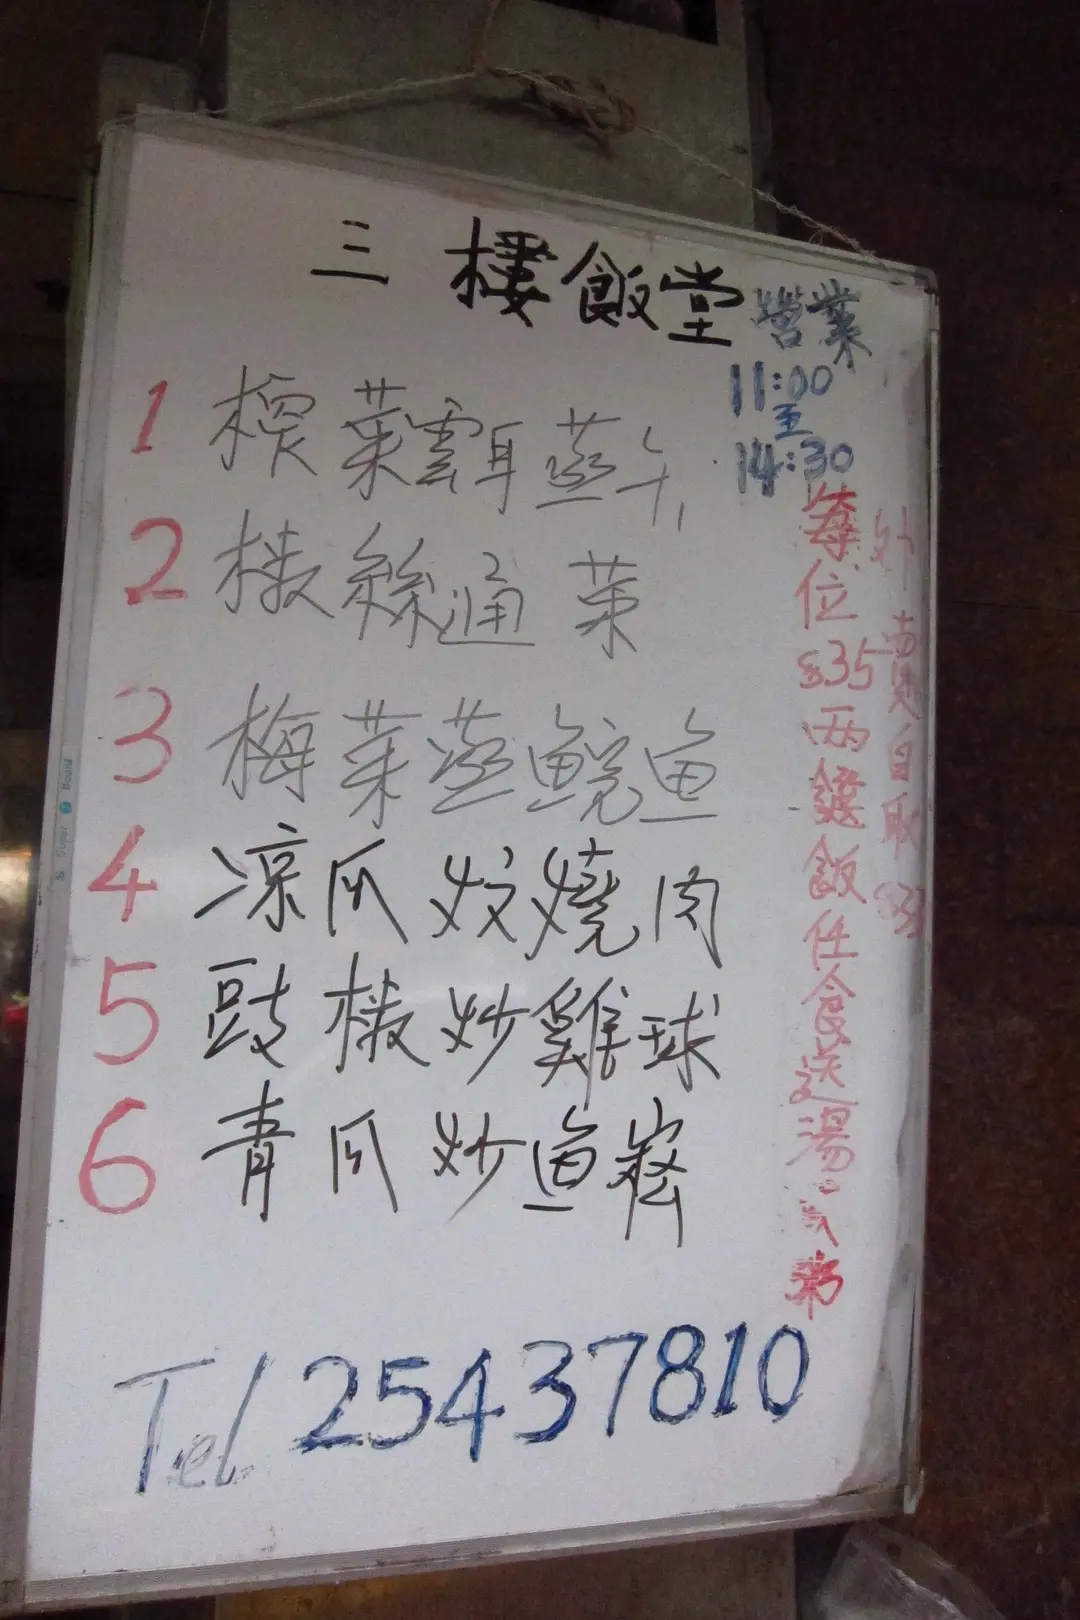 三樓飯堂
營業
11:00
至
14:30
1 榨菜雲耳蒸牛
2 椒絲通菜
3 梅菜蒸鯇魚
4 凉瓜炆燒肉
5 豉椒炒雞球
6 青瓜炒魚
每位$35両餸飯任食送湯或粥
外賣自取$33
Tel 25437810
S Super Board